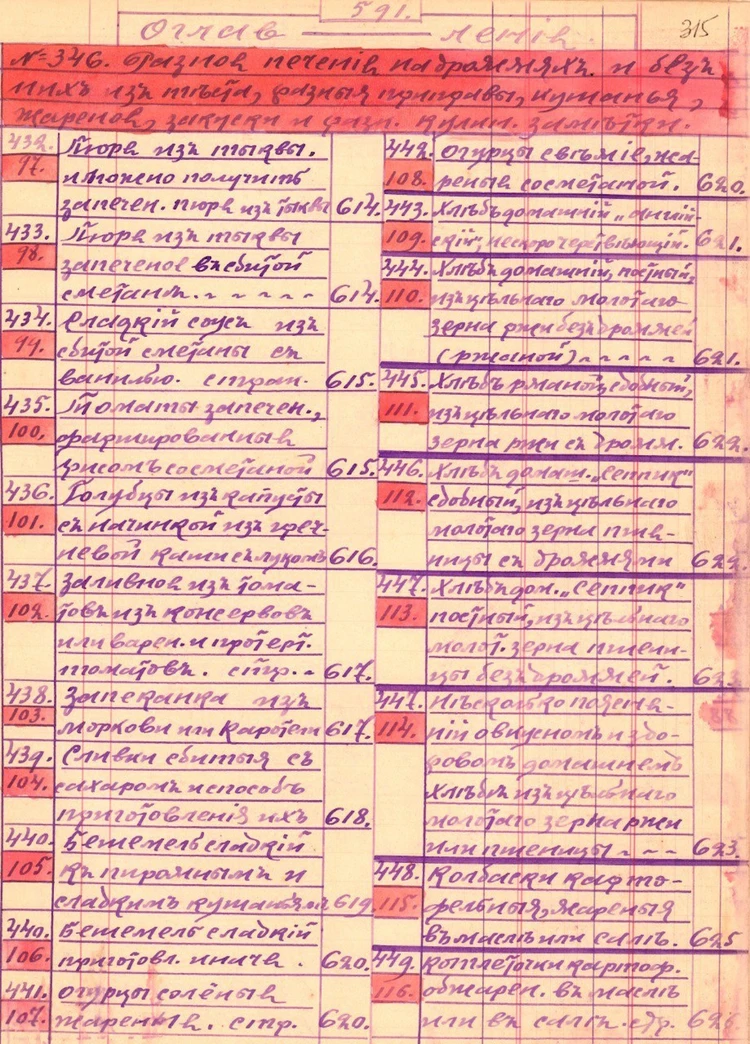 591.
315
Оглав — ленiе.
№ 346. Разное печенiе на дрожжяхъ и безъ
нихъ изъ тѣста, разныя приправы, кушанья,
жареное, закуски и разн. кулин. замѣтки.
432. Пюре изъ тыквы.
97. и можно получить
запечен. пюре изъ тыквы 614.
433. Пюре изъ тыквы
98. запеченое въ сбитой
сметанѣ. - - - - - 614.
434. Сладкiй соусъ изъ
99. сбитой сметаны съ
ванилью. стран. 615.
435. Томаты запечен.,
100. фаршированные
рисомъ со сметаной 615.
436. Голубцы изъ капусты
101. съ начинкой изъ греч-
невой каши съ лукомъ 616.
437. Заливное изъ тома-
102. товъ изъ консервовъ
или варен. и протерт.
томатовъ. стр. - 617.
438. Запеканка изъ
103. моркови или каротели 617.
439. Сливки сбитыя съ
104. сахаромъ и способъ
приготовленiя ихъ 618.
440. Бешемель сладкiй
105. къ пирожнымъ и
сладкимъ кушаньямъ 619.
440. Бешемель сладкiй
106. приготовл. иначе. 620.
441. Огурцы солёные
107. жареные. стр. 620.
442. Огурцы свѣжiе, жа-
108. реные со сметаной. 620.
443. Хлѣбъ домашнiй „англiй-
109. скiй", нескоро черствѣющiй. 621.
444. Хлѣбъ домашнiй, постный,
110. изъ цѣльнаго молотаго
зерна ржи безъ дрожжей
(ржаной) - - - - - 621.
445. Хлѣбъ ржаной, сдобный,
111. изъ цѣльнаго молотаго
зерна ржи съ дрожж. 622.
446. Хлѣбъ домаш. „Сеппик"
112. сдобный, изъ цѣльнаго
молотаго зерна пше-
ницы съ дрожжями 622.
447. Хлѣбъ дом. „Сеппик"
113. постный, изъ цѣльнаго
молот. зерна пшени-
цы безъ дрожжей. 623.
447. Нѣсколько поясне-
114. нiй о вкусномъ и здо-
ровомъ домашнемъ
хлѣбѣ изъ цѣльнаго
молотаго зерна ржи
или пшеницы - - - 623.
448. Колбаски карто-
115. фельныя, жареныя
въ маслѣ или салѣ. 625
449. Котлеточки картоф.
116. обжарен. въ маслѣ
или въ салѣ. стр. 626.